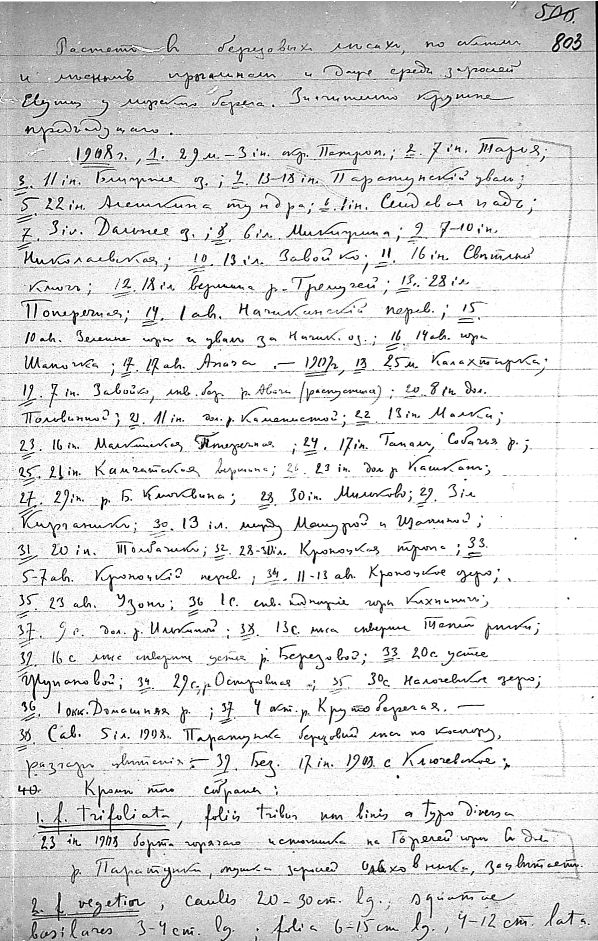 506.
803
Растетъ въ березовыхъ лѣсахъ, по
и лѣснымъ прогалинам и даже среди зарослей
Elymus у морского берега. Значительно крупнее
предыдущаго.
1908 г., 1. 29 м. – 3 iн. окр. Петроп.; 2. 7 iн. Тарья;
3. 11 iн. Ближнее оз.; 4. 13-18 iн. Паратунскій увалъ;
5. 22 iн. Алешкина тундра; 6. 1 iн. Сельдевая падь;
7. 3 iл. Дальнее оз.; 8. 6 iл. Микижина; 9. 7-10 iн.
Николаевская; 10. 13 iл. Завойко; 11. 16 iн. Свѣтлый
ключъ; 12. 18 iл. вершина р. Гремучей; 13. 28 iл.
Поперечная; 14. 1 ав. Начикинскій перев.; 15.
10 ав. Зеленые горы и увалъ за Начик. оз.; 16. 14 ав. гора
Шапочка; 17. 17 ав. Апача. — 1909, 18. 25 м. Калахтырка;
19. 7 iн. Завойко, лѣв. бер. р. Авачи (распустил.); 20. 8 iн. дол.
Половинной; 21. 11 iн. дол. р. Каменистой; 22. 13 iн. Малка;
23. 16 iн. Малкинская Поперечная; 24. 17 iн. Ганалы, Собачья р.;
25. 21 iн. Камчатская вершина; 26. 23 iн. дол. р. Кашкан;
27. 29 iн. р. Б. Клюквина; 28. 30 iн. Мильково; 29. 3 iл.
Кирганикъ; 30. 13 iл. между Машурой и Щапиной;
31. 20 iн. Толбачикъ; 32. 28-30 iл. Кроноцкая тропа; 33.
5-7 ав. Кроноцкій перев.; 34. 11-13 ав. Кроноцкое озеро;
35. 23 ав. Узонъ; 36 1 с. сѣв. подножіе горы Кихпиничъ;
37. 9 с. дол. р. 38. 13 с. мыса сѣвернѣе рѣки;
39. 16 с. сѣвернѣе устья р. Березовой; 33. 20 с. устье
Жупановой; 34. 29 с. р. Островная; 35 30 с. Налочевское озеро;
36. 1 окт. Домашняя р.; 37. 4 окт. р. Крутоберегая. —
38. Сав. 5 iл. 1908. Паратунка березовый лѣсъ по косогору,
разгаръ цвѣтенія. — 39. Без. 17 iн. 1908 с. Ключевское.
40 Кромѣ того собрана:
1. f. trifoliata, foliis tribus non binis a typo diversa
23 iн 1908 борта горячаго источника на Горячей горѣ въ дол.
р. Паратунки, опушка зарослей ольховника, зацвѣтает.
2. f. vegetior, caulis 20-30 cm. lg., squamae
basilares 3-4 cm. lg.; folia 6-15 cm. lg., 4-12 cm. lata.